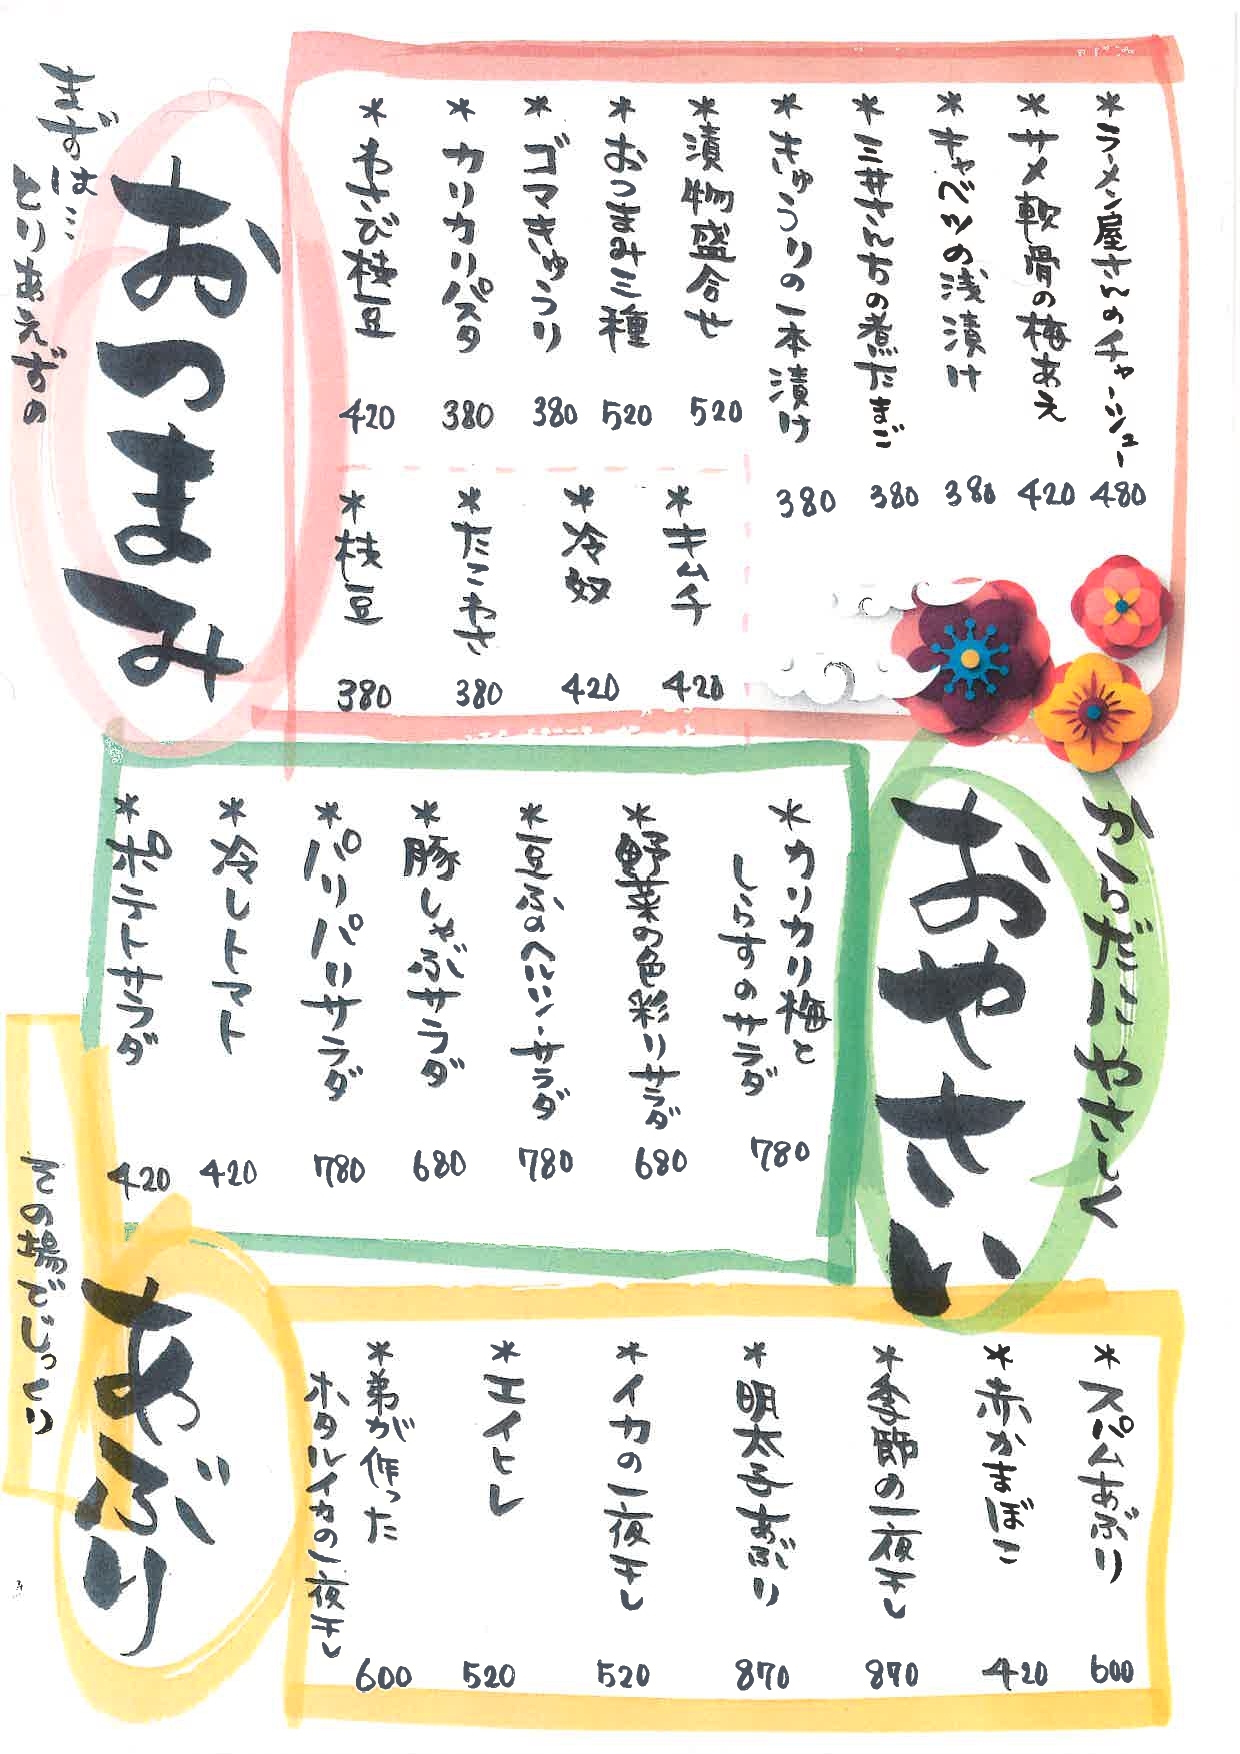 まずは…
とりあえずの
おつまみ
*ラーメン屋さんのチャーシュー 480
*サメ軟骨の梅あえ 420
*キャベツの浅漬け 380
*三井さんちの煮たまご 380
*きゅうりの一本漬け 380
*漬物盛合せ 520
*おつまみ三種 520
*ゴマきゅうり 380
*カリカリパスタ 380
*わさび枝豆 420
*キムチ 420
*冷奴 420
*たこわさ 380
*枝豆 380
からだにやさしく
おやさい
*カリカリ梅と
しらすのサラダ 780
*野菜の色彩りサラダ 680
*豆ふのヘルシーサラダ 780
*豚しゃぶサラダ 680
*パリパリサラダ 780
*冷しトマト 420
*ポテトサラダ 420
その場でじっくり
あぶり
*スパムあぶり 600
*赤かまぼこ 420
*季節の一夜干し 870
*明太子あぶり 870
*イカの一夜干し 520
*エイヒレ 520
*弟が作った
ホタルイカの一夜干し 600